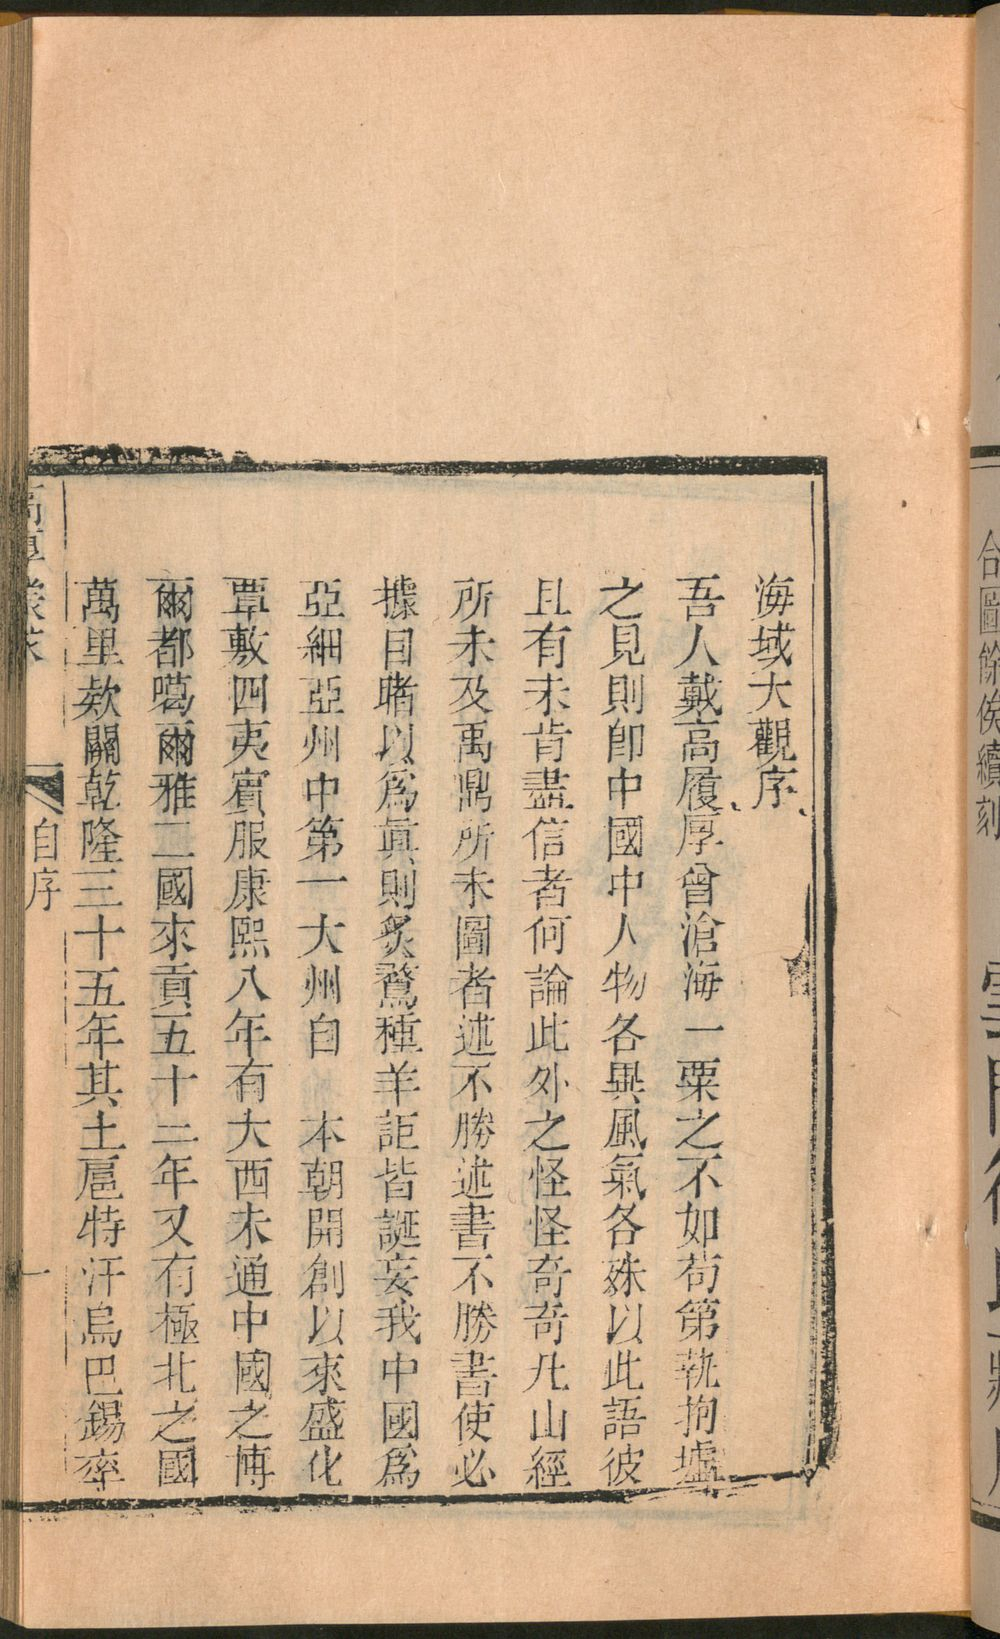 海域大觀序
吾人戴高履厚曾滄海一粟之不如苟第執拘墟
之見則卽中國中人物各異風氣各殊以此語彼
且有未肯盡信者何論此外之怪怪奇奇凡山經
所未及禹鼎所未圖者述不勝述書不勝書使必
據目睹以爲眞則炙鵞種羊詎皆誕妄我中國爲
亞細亞州中第一大州自　本朝開創以來盛化
覃敷四夷賓服康熙八年有大西未通中國之博
爾都噶爾雅二國來貢五十二年又有極北之國
萬里欵關乾隆三十五年其土扈特汗烏巴錫率
自序
一
合圖餘俟續刻